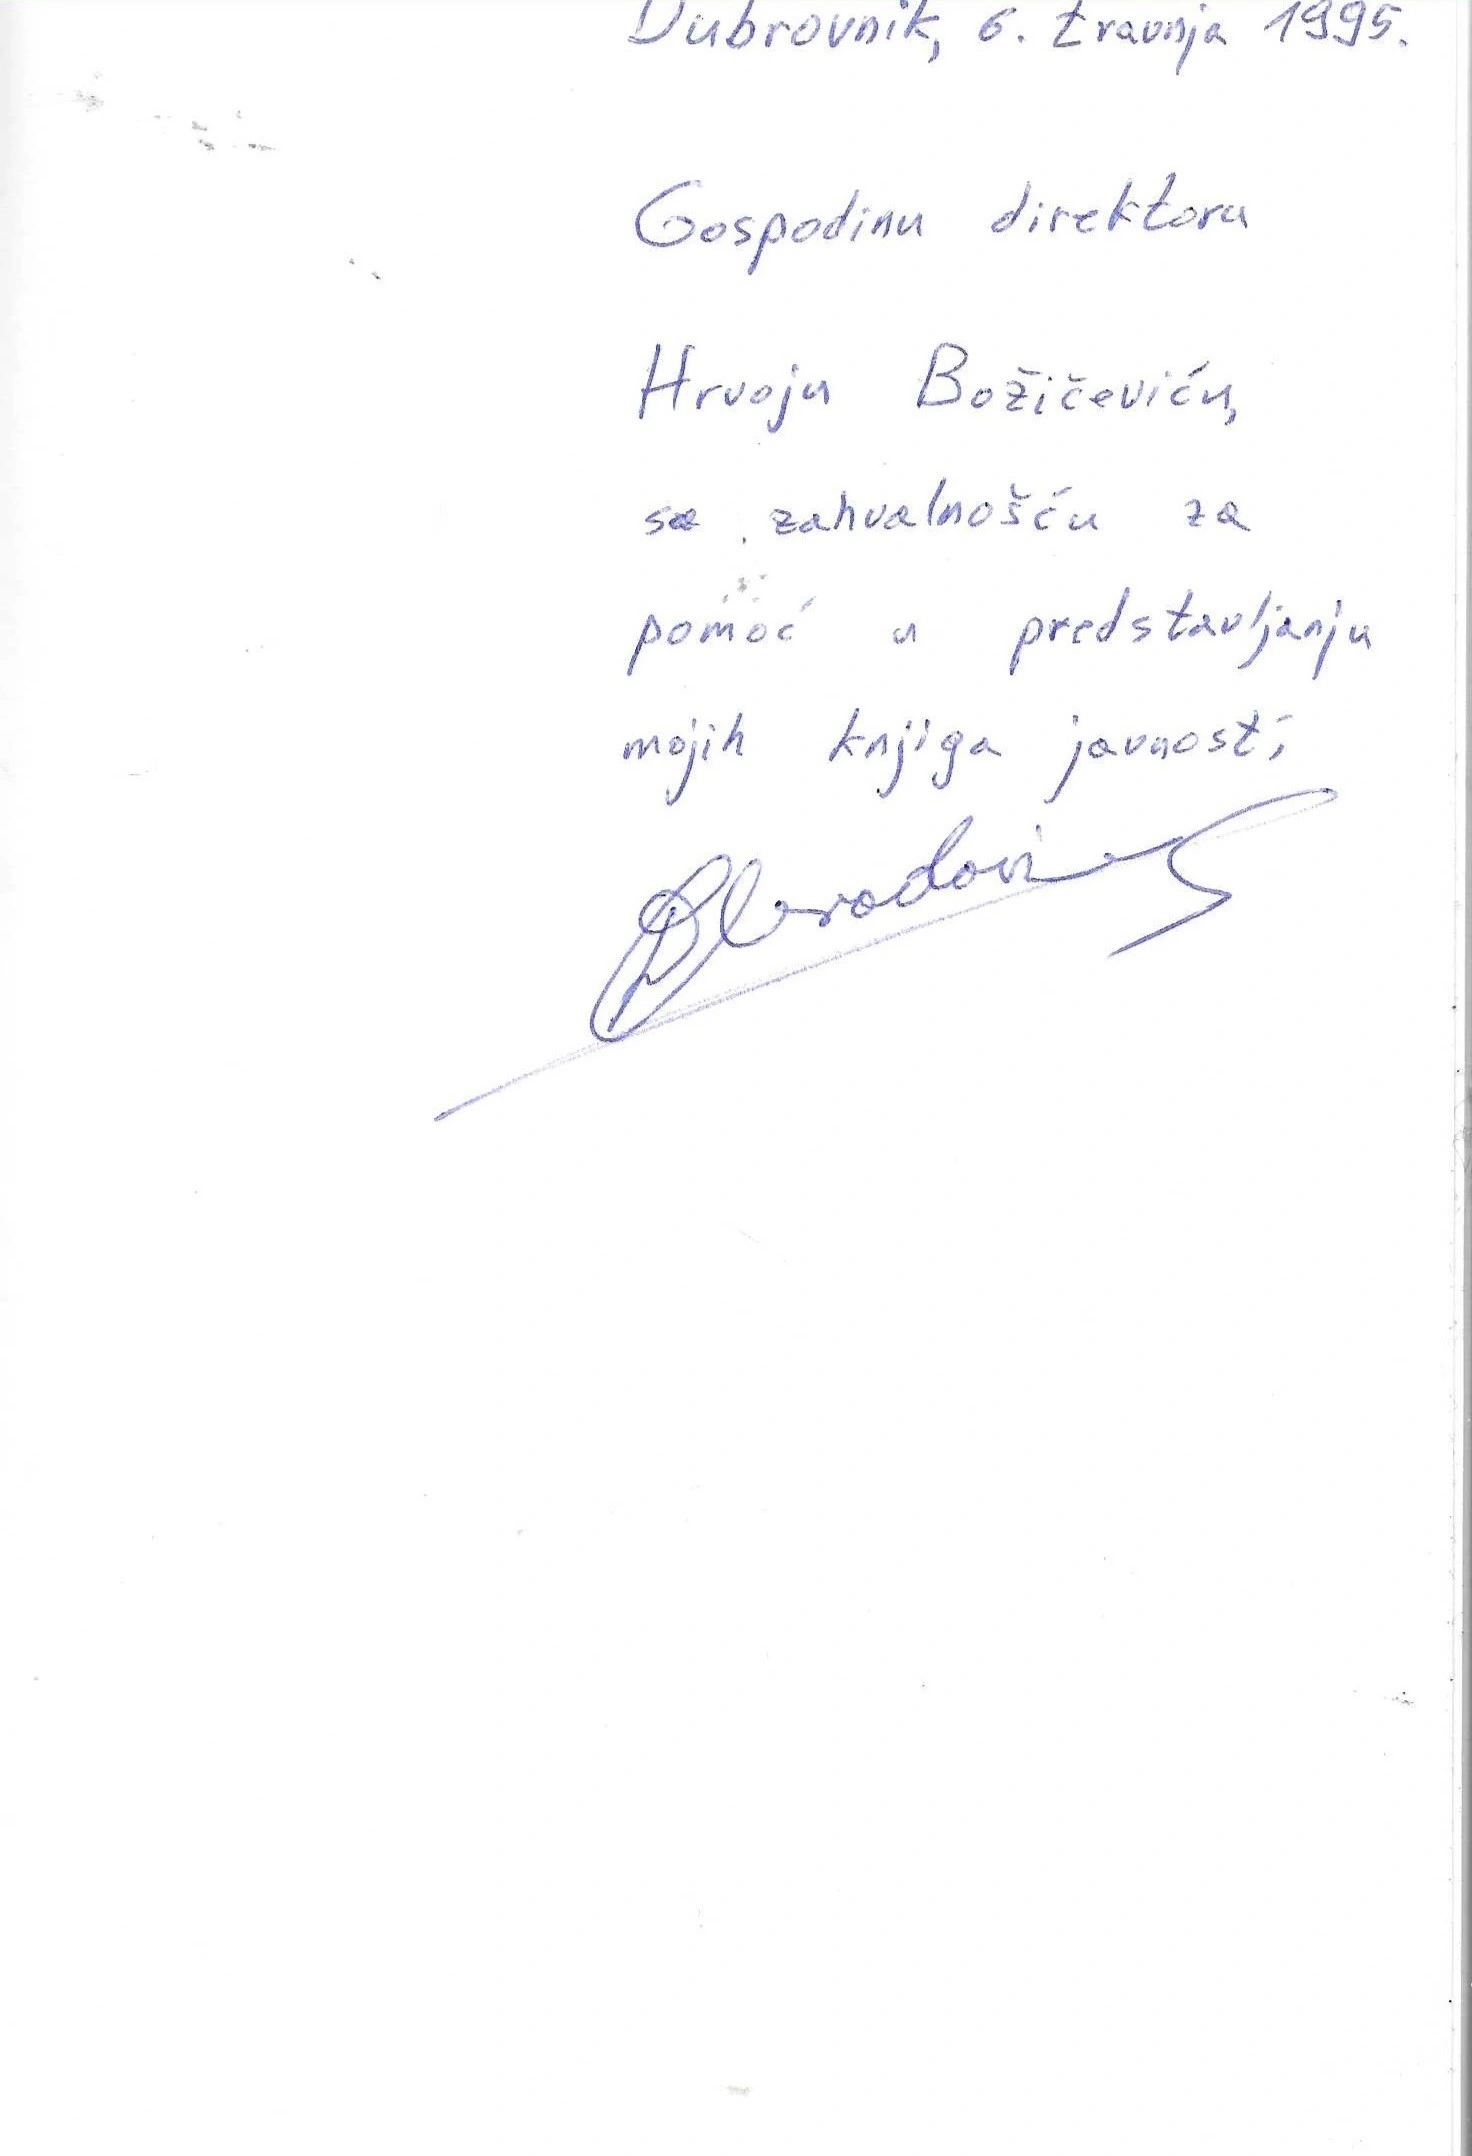 Dubrovnik, 6. travnja 1995.
Gospodinu direktoru
Hrvoju Božičeviću,
sa zahvalnošću za
pomoć u predstavljanju
mojih knjiga javnosti